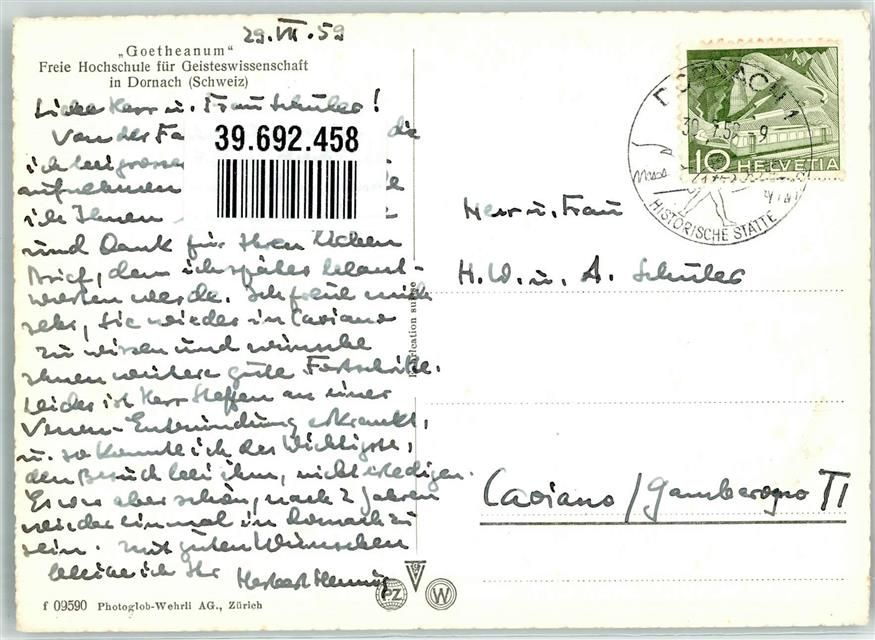 29. VII. 59
„Goetheanum“
Freie Hochschule für Geisteswissenschaft
in Dornach (Schweiz)
Liebe Herr u. Frau Schuler!
Von der Fa
39.692.458
aufnehmen
ich Ihnen
und Dank für Ihren lieben
Brief, den ich später beant-
worten werde. Ich freue mich
sehr, Sie wieder in Caviano
zu wissen und wünsche
Ihnen weitere gute Fortschritte.
Leider ist Herr Steffen an einer
Venen-Entzündung erkrankt,
u. so konnte ich das Wichtigste,
den Besuch bei ihm, nicht erledigen.
Es war aber schön, nach 2 Jahren
wieder einmal in Dornach zu
sein. Mit guten Wünschen
bleibe ich Ihr Herbert Hennig
f 09590 Photoglob-Wehrli AG., Zürich
Fabrication suisse
PZ
W
DORNACH 1
HISTORISCHE STÄTTE
10 HELVETIA
Herr u. Frau
H. W. u. A. Schuler
Caviano / Gambarogno TI